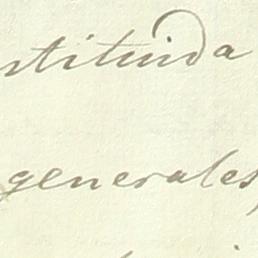 stituida
generales,